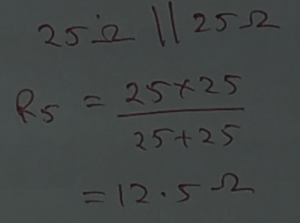 25Ω || 25Ω
R5 = 25×25 / 25+25
= 12.5 Ω